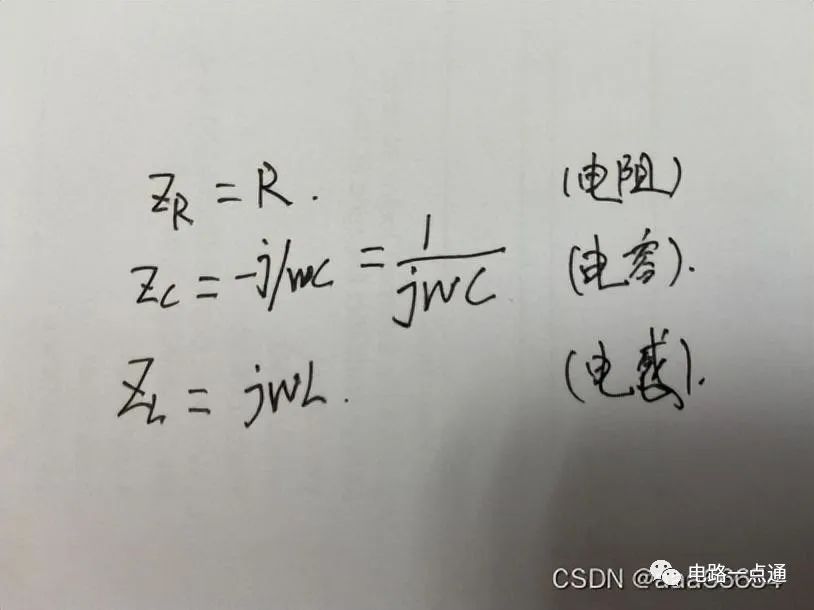 Z_R = R. (电阻)
Z_C = -j/wC = 1/jwC (电容).
Z_L = jwL. (电感).
CSDN
电路一点通